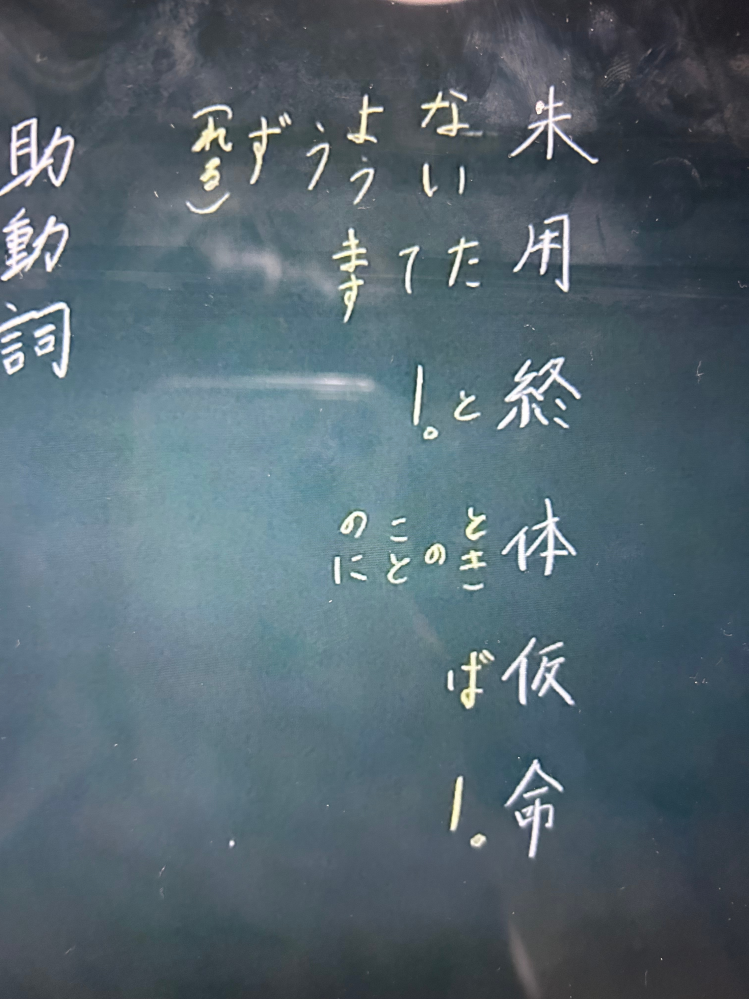 未用終体仮命
ない
よう
う
ず
（れる）
た
て
ます
と
ー。
とき
の
こと
のに
ば
ー。
助動詞